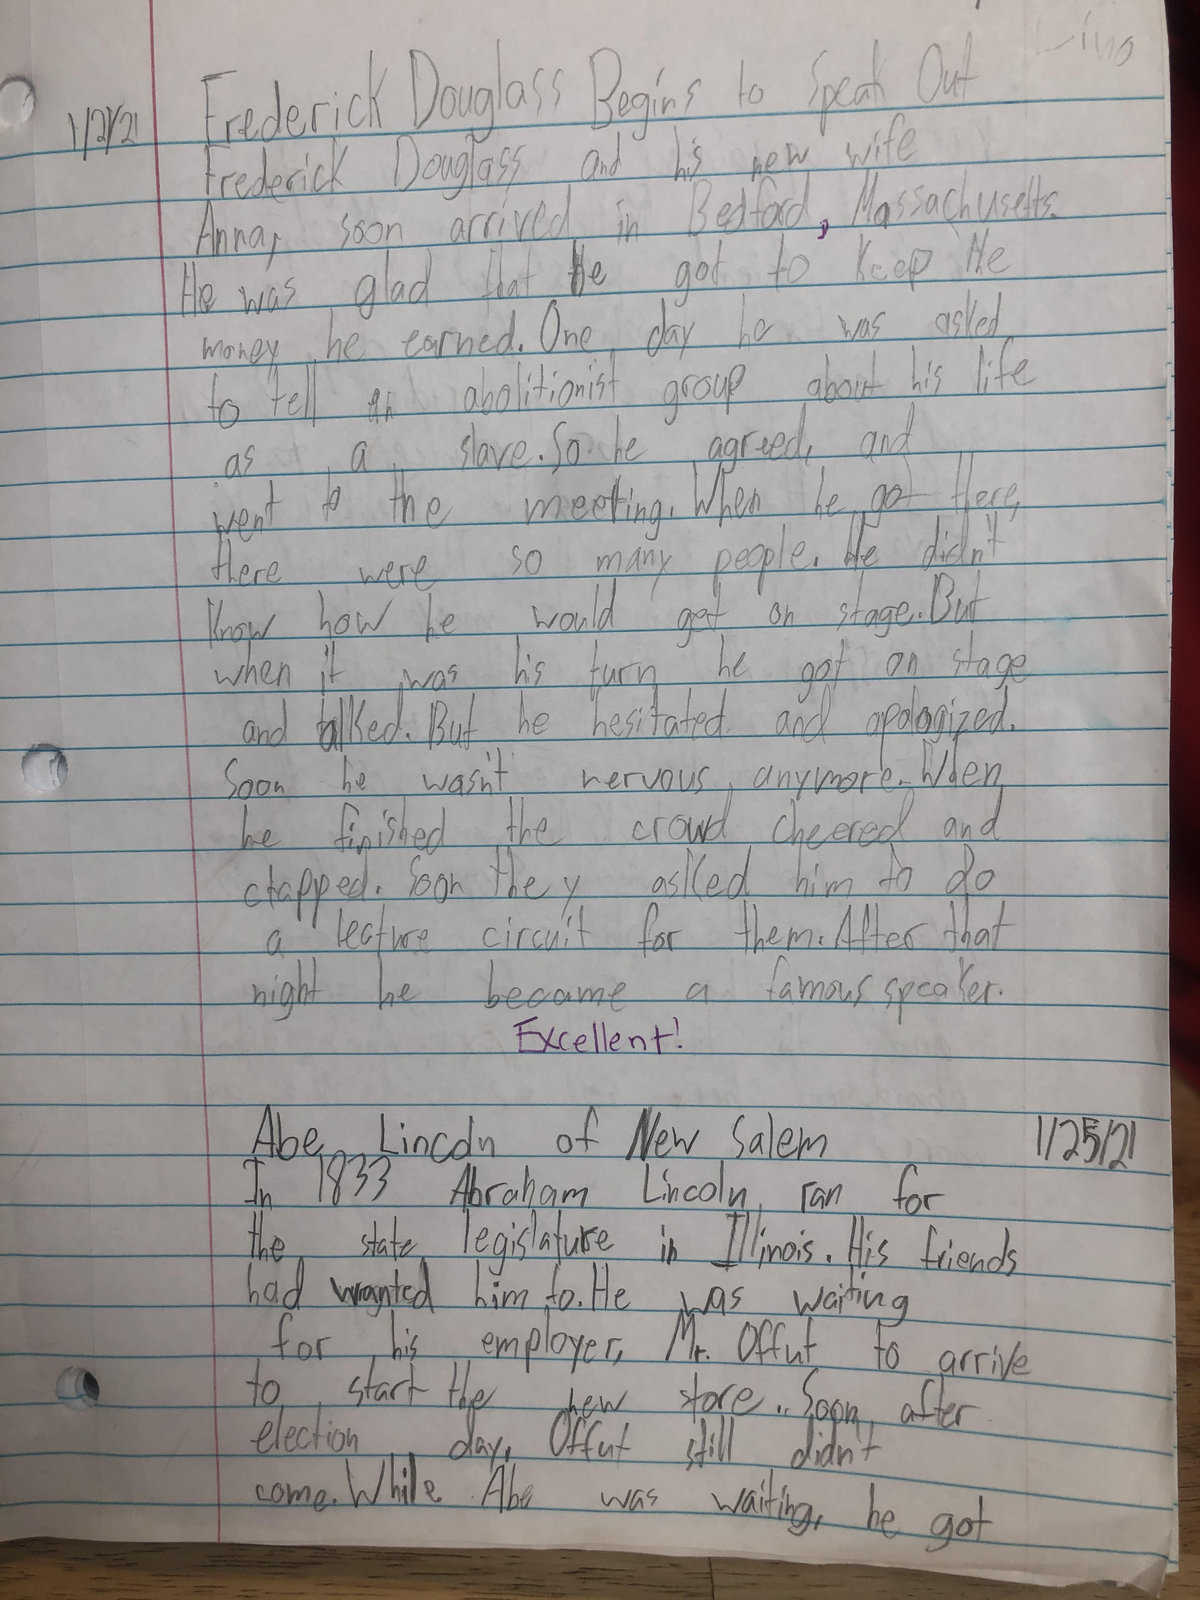 Lino
1/21/21
Frederick Douglass Begins to Speak Out
Frederick Douglass and his new wife
Anna, soon arrived in Bedford, Massachusetts.
He was glad that he got to keep the
money he earned. One day he was asked
to tell an abolitionist group about his life
as a slave. So he agreed, and
went to the meeting. When he got there,
there were so many people. He didn't
know how he would get on stage. But
when it was his turn he got on stage
and talked. But he hesitated and apologized.
Soon he wasn't nervous anymore. When
he finished the crowd cheered and
clapped. Soon they asked him to do
a lecture circuit for them. After that
night he became a famous speaker.
Excellent!
Abe Lincoln of New Salem 1/25/21
In 1833 Abraham Lincoln ran for
the state legislature in Illinois. His friends
had wanted him to. He was waiting
for his employer, Mr. Offut to arrive
to start the new store.. Soon, after
election day, Offut still didn't
come. While Abe was waiting, he got